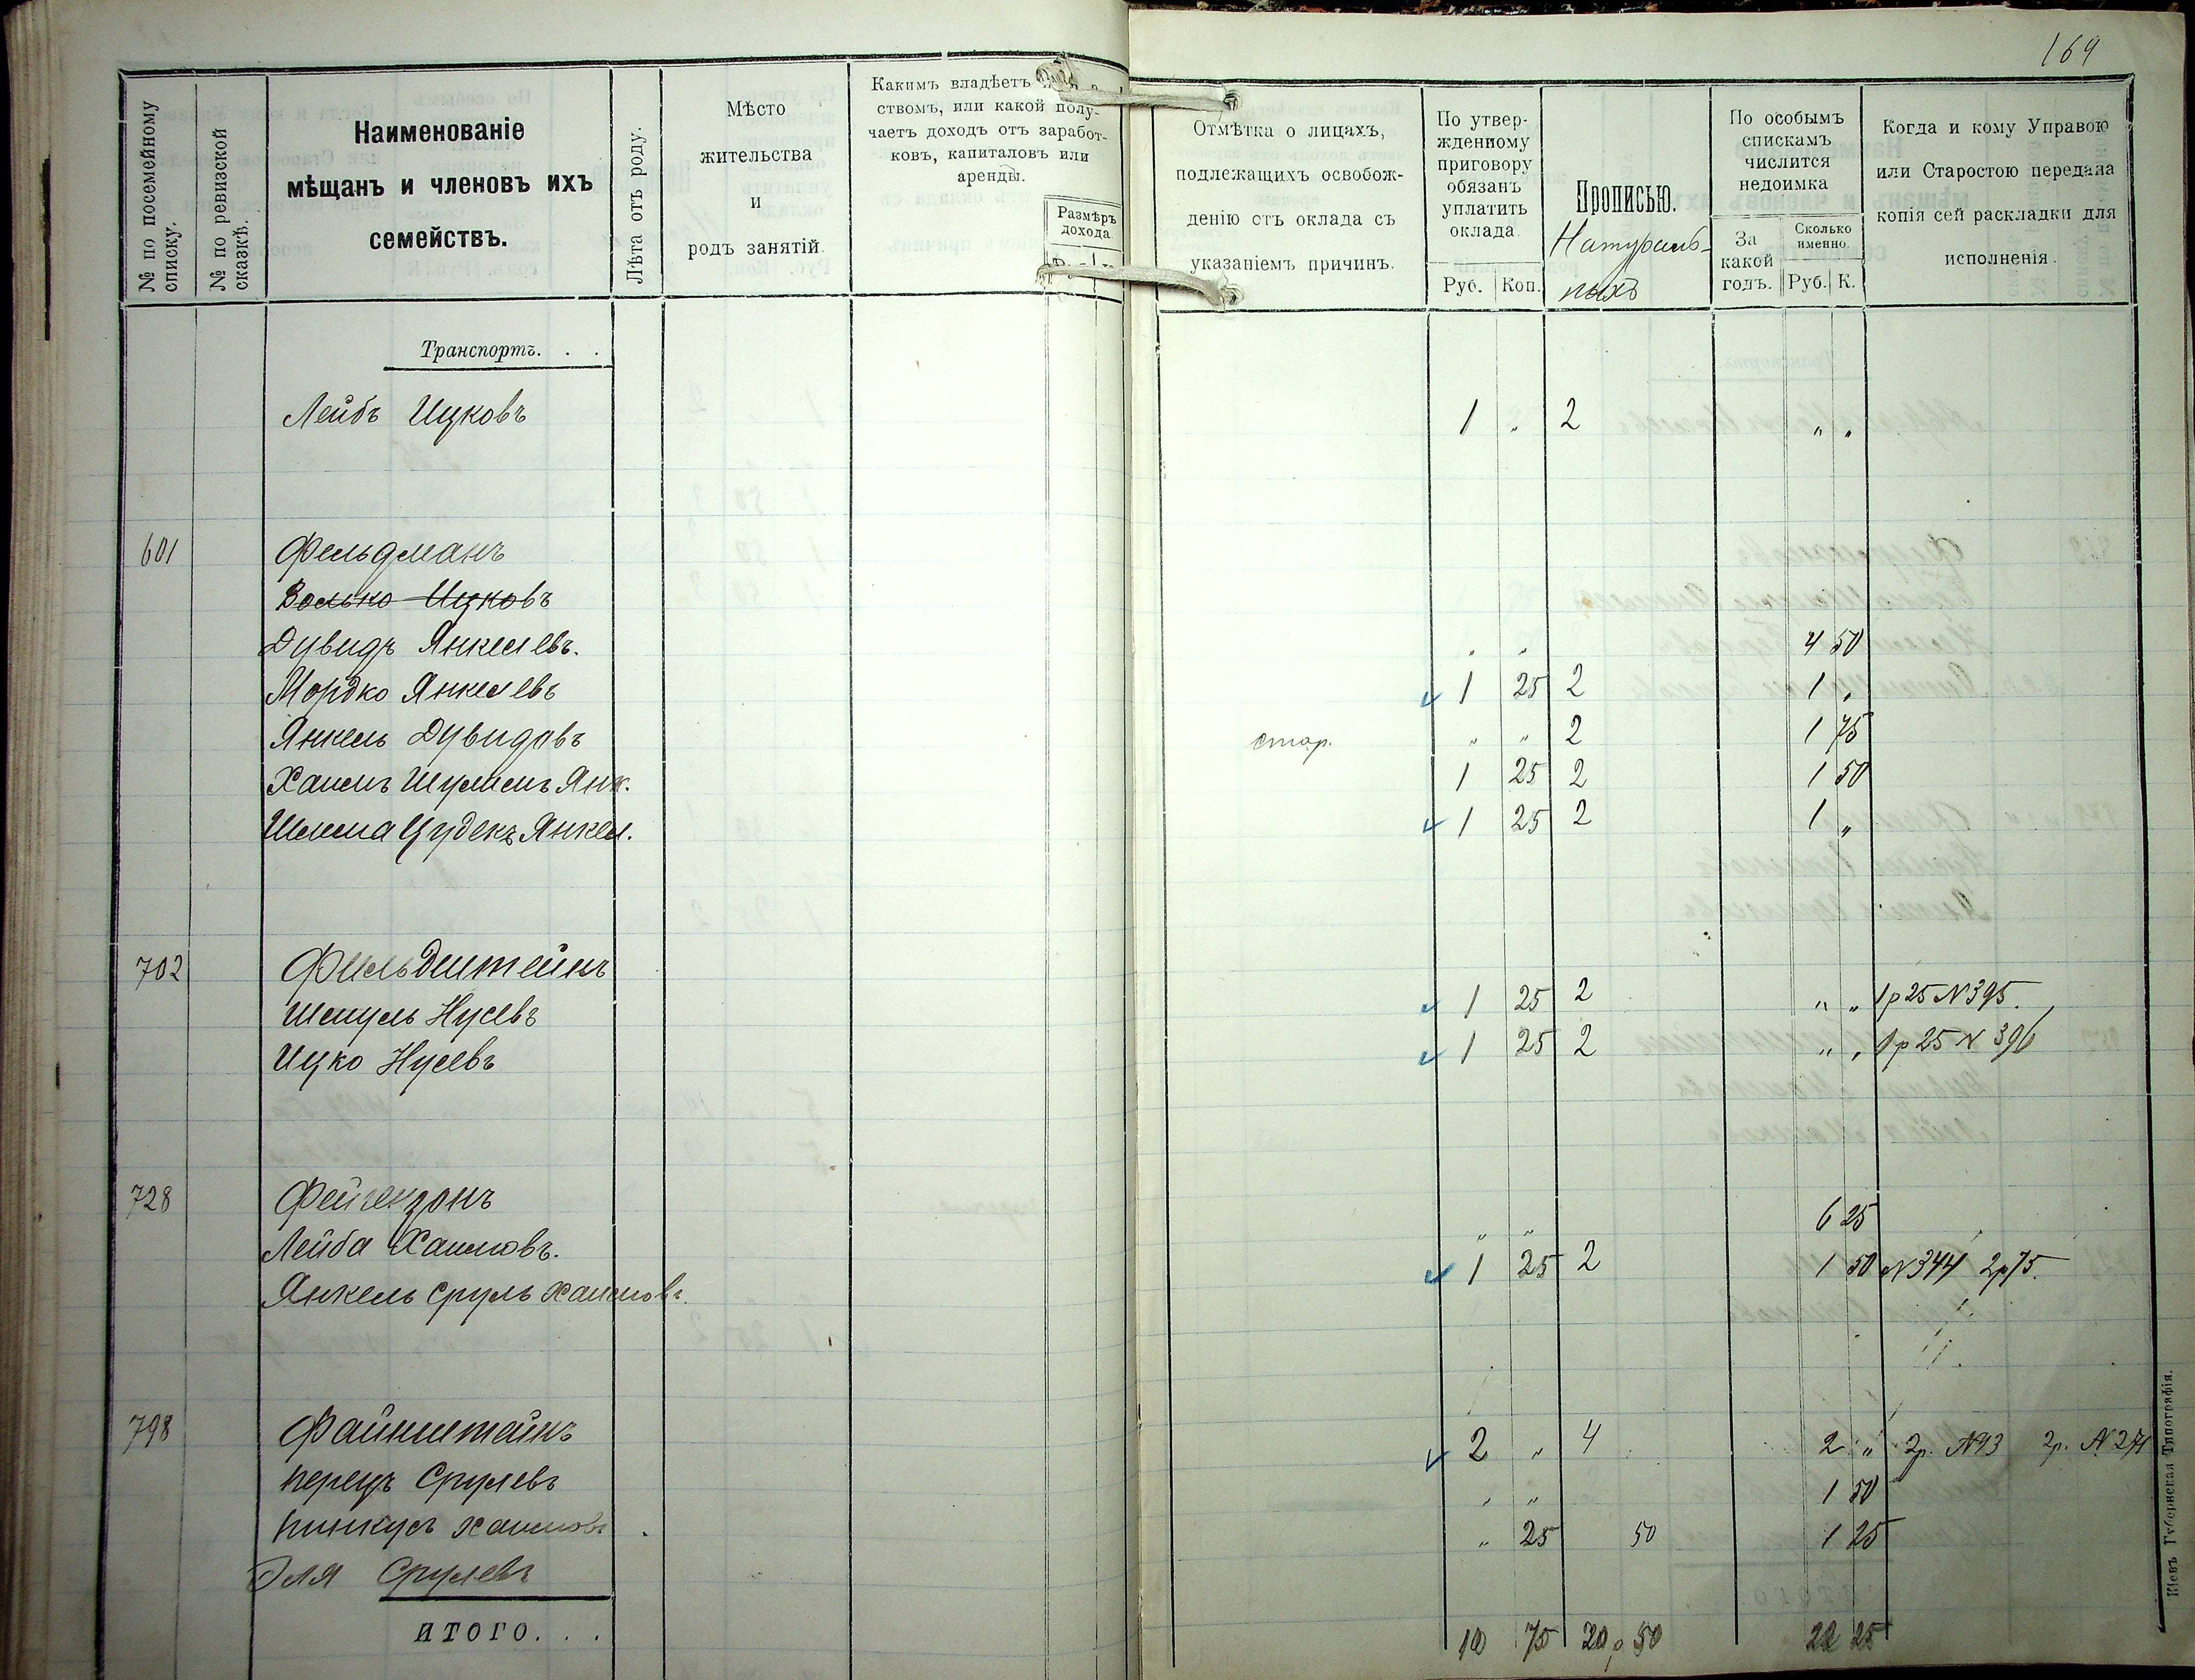 164
№ по посемейному списку.
№ по ревизской сказкѣ.
Наименованіе
мѣщанъ и членовъ ихъ
семействъ.
Лѣта отъ роду.
Мѣсто
жительства
и
родъ занятій.
Какимъ владѣетъ
ствомъ, или какой полу-
чаетъ доходъ отъ заработ-
ковъ, капиталовъ или
аренды.
Размѣръ
дохода.
Отмѣтка о лицахъ,
подлежащихъ освобож-
денію отъ оклада съ
указаніемъ причинъ.
По утвер-
жденному
приговору
обязанъ
уплатить
оклада.
Руб. Коп.
Прописью.
Натураль-
ныхъ
По особымъ
спискамъ
числится
недоимка
За
какой
годъ.
Сколько
именно.
Руб. К.
Когда и кому Управою
или Старостою передана
копія сей раскладки для
исполненія.
Транспортъ. . .
Лейбъ Ицковъ 1 „ 2 „ „
601 Фельдманъ
Волько Ицковъ
Дувидъ Янкелевъ. „ „ 4 50
Мордко Янкелевъ 1 25 2 1 „
Янкель Дувидовъ стар. „ „ 2 1 75
Хаимъ Шулимъ Янк. 1 25 2 1 50
Шлема Цудекъ Янкел. 1 25 2 1 „
702 Фильдштейнъ
Шмуль Нусевъ 1 25 2 „ „ 1р 25 N 395.
Ицко Нусевъ 1 25 2 „ „ 1р 25 N 396
728 Фейгензонъ
Лейба Хаимовъ. „ „ 6 25
Янкель Сруль Хаимовъ. 1 25 2 1 50 N 344 2р 75.
798 Файнштайнъ
Перецъ Срулевъ 2 „ 4 2 „ 2р. N 93 2р. N 271
Пинкусъ Хаимовъ „ „ 1 50
Эля Срулевъ „ 25 50 1 25
ИТОГО. . . 10 75 20, 50 22 25
Кіевъ Губернская Типографія.